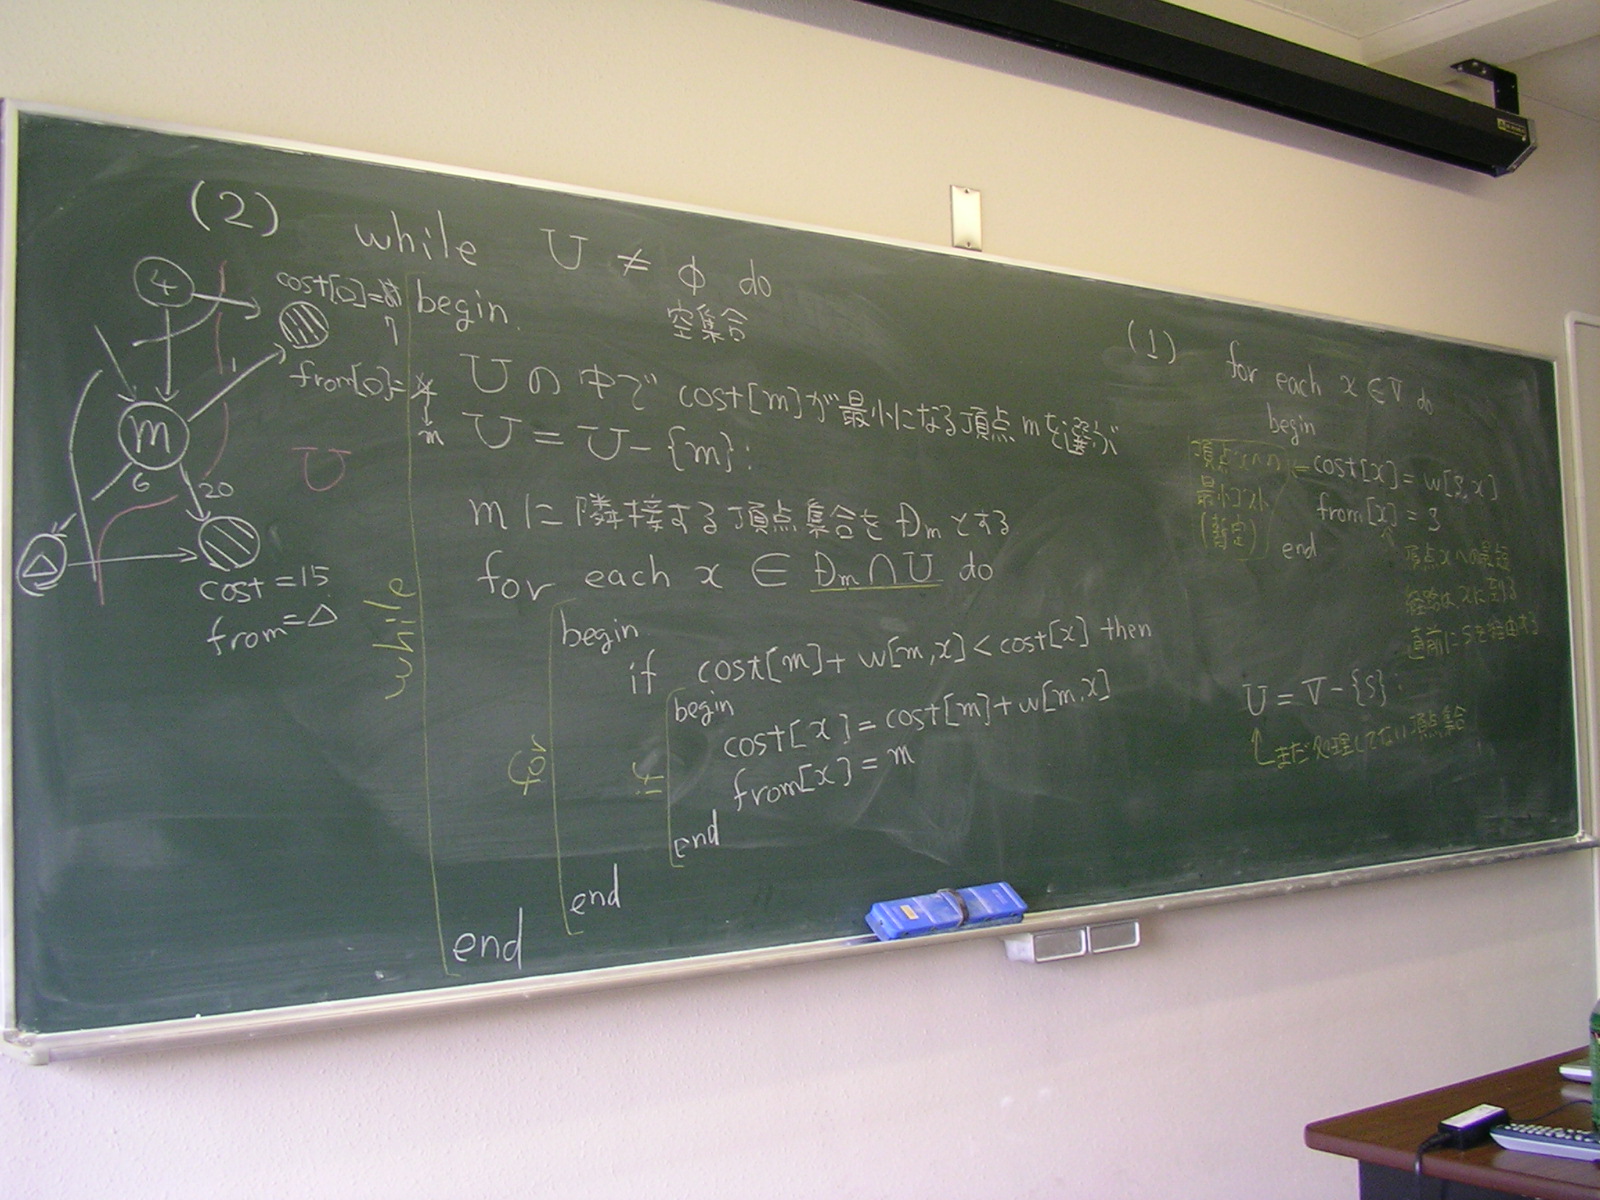 (2) while U ≠ φ do
空集合
begin
Uの中でcost[m]が最小になる頂点mを選ぶ
U = U - {m};
mに隣接する頂点集合をDmとする
for each x ∈ Dm ∩ U do
begin
if cost[m] + w[m,x] < cost[x] then
begin
cost[x] = cost[m] + w[m,x]
from[x] = m
end
end
end
while
for
if
4
cost[0]=
7
from[0]=4
m
1
m
6
20
U
Δ
cost = 15
from = Δ
(1)
for each x ∈ V do
begin
cost[x] = w[s,x]
from[x] = s
end
頂点xへの
最小コスト
(暫定)
頂点xへの最短
経路はxに到る
直前にsを経由する
U = V - {s};
まだ処理してない頂点集合